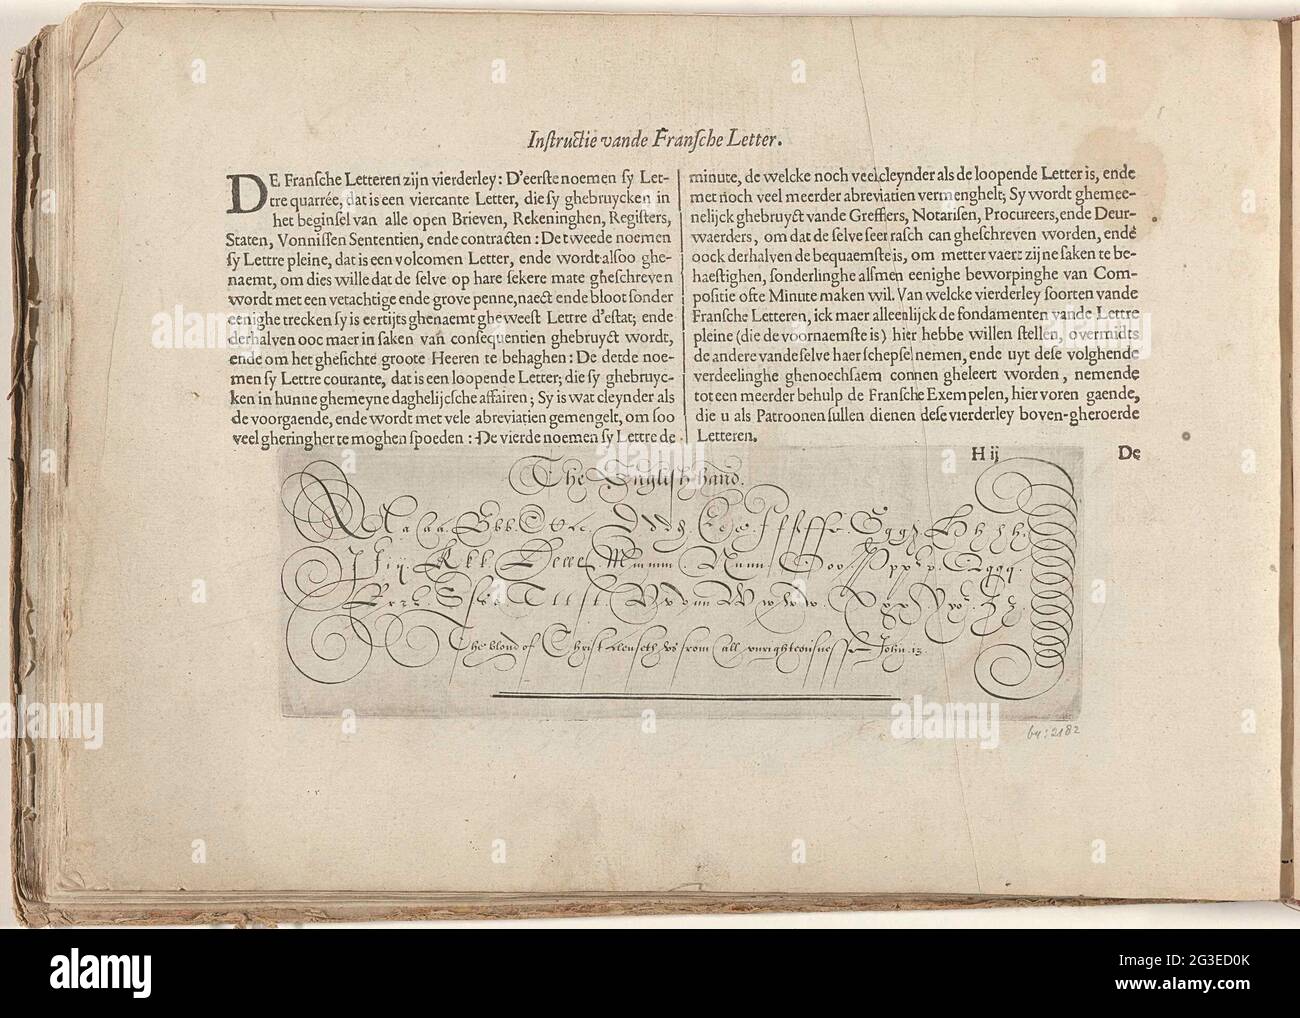 Instructie vande Fransche Letter.
DE Fransche Letteren zijn vierderley: D'eerste noemen sy Let-
tre quarrée, dat is een viercante Letter, die sy ghebruycken in
het beginsel van alle open Brieven, Rekeninghen, Registers,
Staten, Vonnissen Sententien, ende contracten: De tweede noemen
sy Lettre pleine, dat is een volcomen Letter, ende wordt alsoo ghe-
naemt, om dies wille dat de selve op hare sekere mate gheschreven
wordt met een vetachtige ende grove penne, naect ende bloot sonder
eenighe trecken sy is eertijts ghenaemt gheweest Lettre d'estat; ende
derhalven ooc maer in saken van consequentien ghebruyct wordt,
ende om het ghesichte groote Heeren te behaghen: De detde noe-
men sy Lettre courante, dat is een loopende Letter; die sy ghebruyc-
ken in hunne ghemeyne daghelijcsche affairen; Sy is wat cleynder als
de voorgaende, ende wordt met vele abreviatien gemengelt, om soo
veel gheringher te moghen spoeden: De vierde noemen sy Lettre de
minute, de welcke noch veel cleynder als de loopende Letter is, ende
met noch veel meerder abreviatien vermenghelt; Sy wordt ghemee-
nelijck ghebruyct vande Greffiers, Notarisen, Procureers, ende Deur-
waerders, om dat de selve seer rasch can gheschreven worden, ende
oock derhalven de bequaemste is, om metter vaert zijne saken te be-
haestighen, sonderlinghe alsmen eenighe beworpinghe van Com-
positie ofte Minute maken wil. Van welcke vierderley soorten vande
Fransche Letteren, ick maer alleenlijck de fondamenten vande Lettre
pleine (die de voornaemste is) hier hebbe willen stellen, overmidts
de andere vande selve haer schepsel nemen, ende uyt dese volghende
verdeelinghe ghenoechsaem connen gheleert worden, nemende
tot een meerder behulp de Fransche Exempelen, hier voren gaende,
die u als Patroonen sullen dienen dese vierderley boven-gheroerde
Letteren.
H ij De
The English hand.
The bloud of Christ clenseth vs from all vnrighteousnesse John. 13.
bn: 2182
alamy
Image ID: 2G3ED0K
www.alamy.com